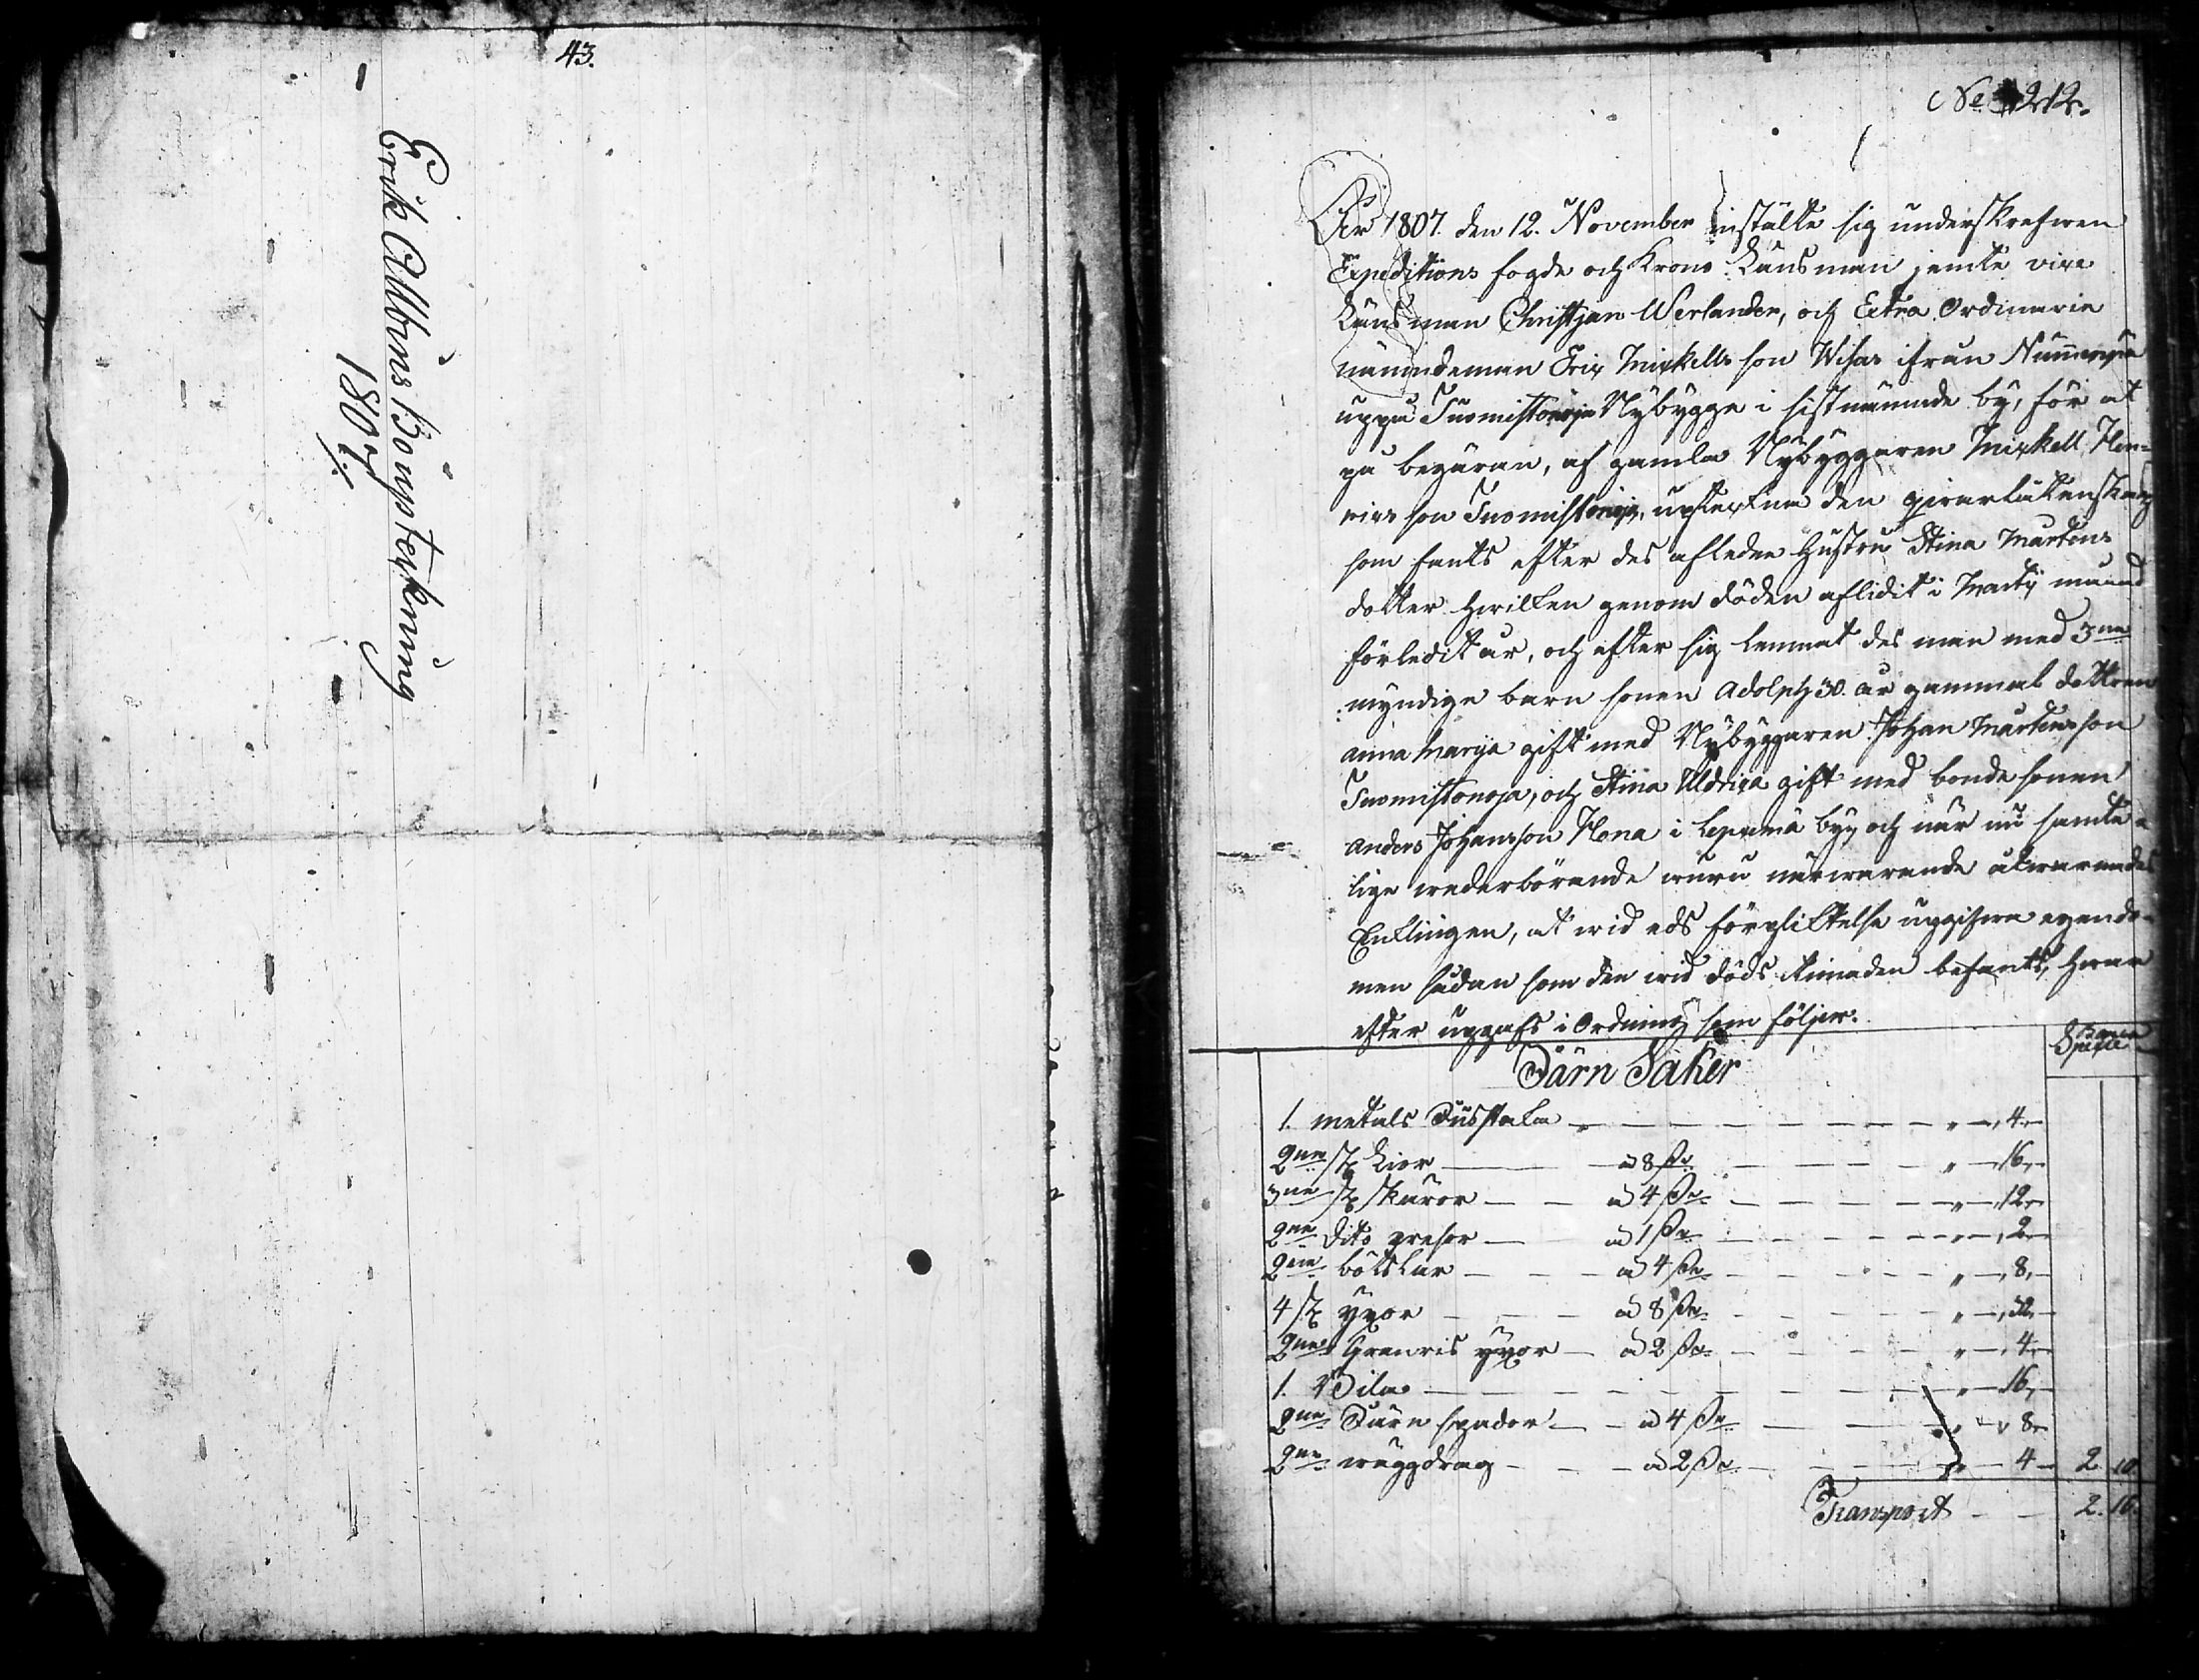 43.
Erik Ollbms Bouptekning
1807 ./.
No 212.
År 1807. den 12. November instälte sig underskrefwen
Expeditions fogde och Krono Länsman jemte vice
Länsman Christjan Werlander, och Extra Ordinarie
nämndeman Eric Mickells son Wihas ifrån Nummenpä
uppå Suomistonoja Nybygge i sistnämnde by, för at
på begäran, af gamla Nybyggaren Mickell Hen-
rics son Suomistonoja, upteckna den qwarlåtenskap
som fants efter des afledne Hustru Stina Mårtens
dotter hwilken genom döden aflidit i Martij månad
förledit år, och efter sig lemnat des man med 3ne
myndige barn sonen Adolph 30. år gammal dottren
Anna Marija gift med Nybyggaren Johan Mårtensson
Suomistonoja, och Stina Uldrica gift med bonde sonen
Anders Johansson Hona i by, och när nu samte-
lige wederbörande woro närwarande åtwarnades
Enklingen, at wid eds förpliktelse uppgifwa egendo-
men sådan som den wid döds timaden befants, hwar
efter uppgafs i Ordning som följer.
Banco
Specie
Järn Saker
1. metals Liusstaka „ 4. —
2ne st Liar — à 8 sk — „ 16. —
3ne st skäror — à 4 sk — „ 12. —
2ne dito gresor — à 1 sk — „ 2 —
2ne båtskar — à 4 sk — „ 8. —
4 st yxor — à 8 sk — „ 32. —
2ne Granris yxor — à 2 sk — „ 4. —
1. Bila — „ 16. —
2ne Järn spador — à 4 sk — „ 8. —
2ne wäggdrag — à 2 sk — „ 4 — 2. 10
Transport — 2. 10.